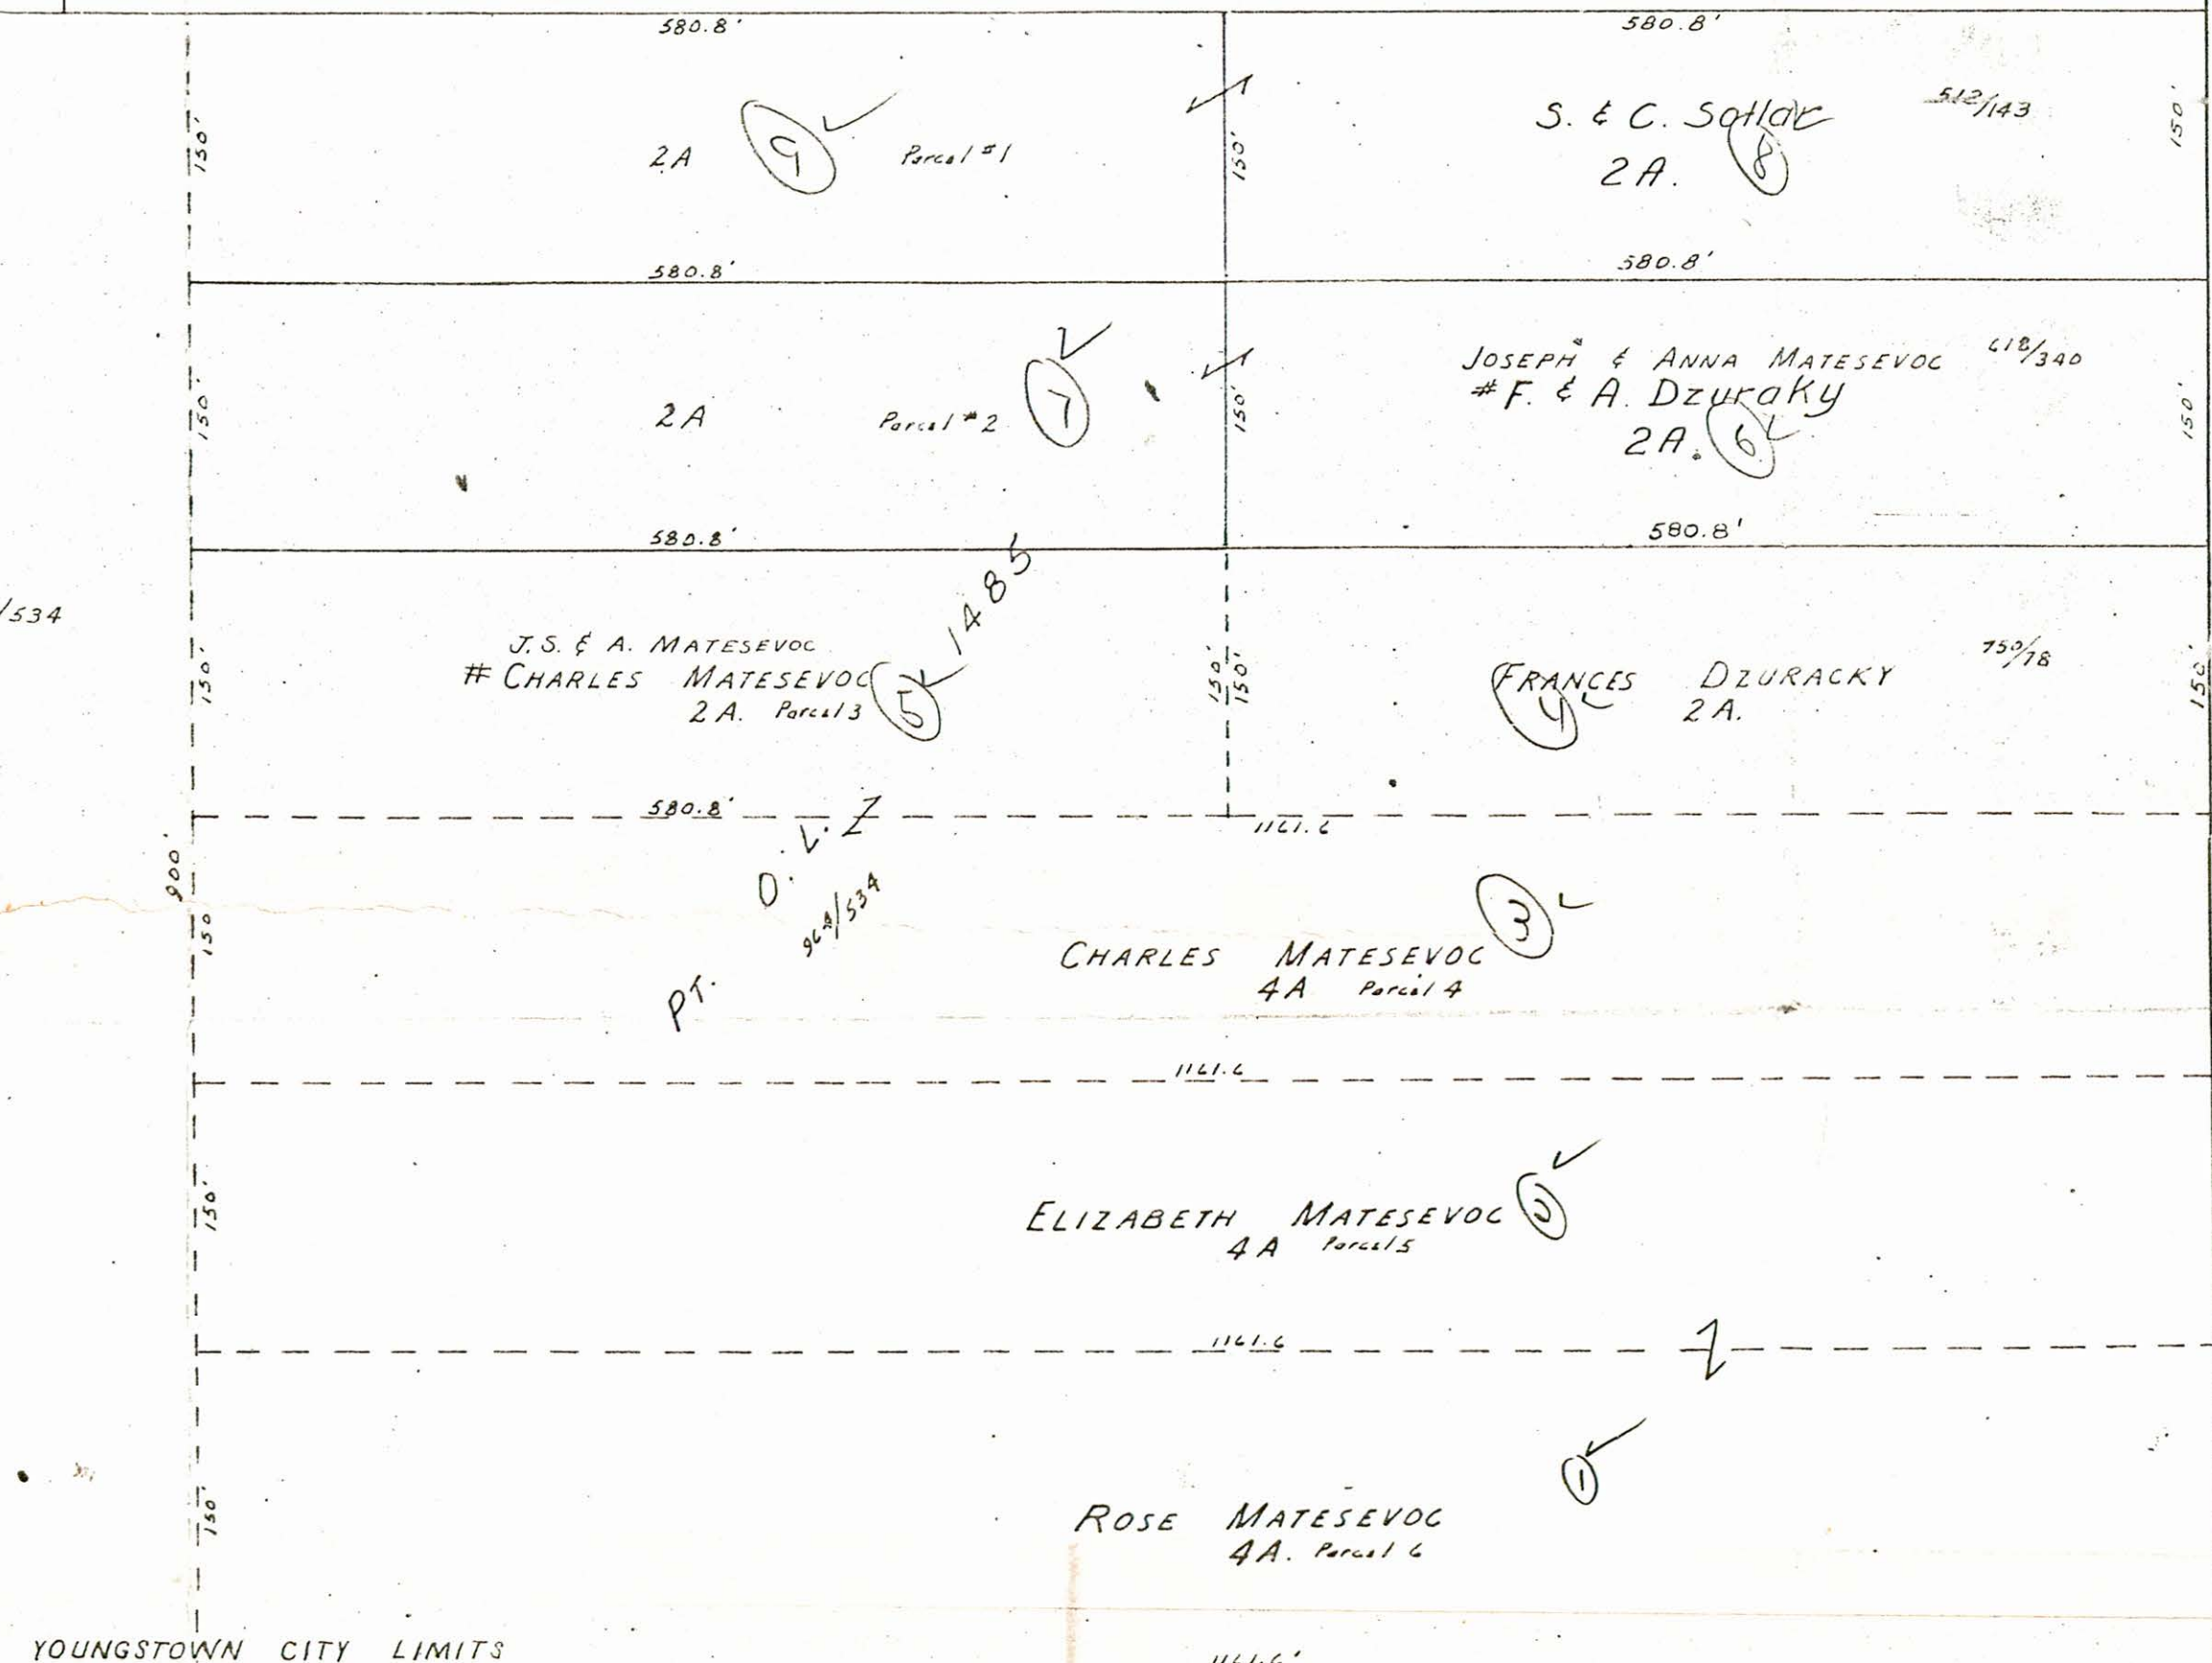 580.8'
580.8'
150'
2A
9
Parcel #1
150'
S. & C. Sollar
512/143
2A.
8
150'
580.8'
580.8'
150'
2A
Parcel #2
7
150'
JOSEPH & ANNA MATESEVOC
618/340
# F. & A. Dzuraky
2A.
6
150'
580.8'
580.8'
/534
150'
J.S. & A. MATESEVOC
# CHARLES MATESEVOC
2A. Parcel 3
5
150'
150'
FRANCES DZURACKY
750/78
4
2A.
150'
580.8'
1161.6
900'
150'
PT. O.L. 1485
/534
CHARLES MATESEVOC
3
4A Parcel 4
1161.6
150'
ELIZABETH MATESEVOC
2
4A Parcel 5
1161.6
150'
1
ROSE MATESEVOC
4A. Parcel 6
YOUNGSTOWN CITY LIMITS
1161.6'